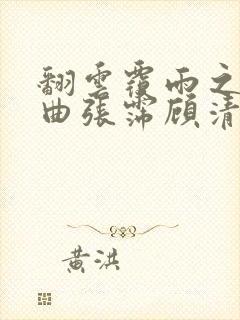 翻雲覆雨之
曲張霈顧清
黃洪